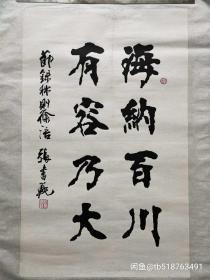 海納百川
有容乃大
節録林則徐語 張書範
闲鱼@tb518763491